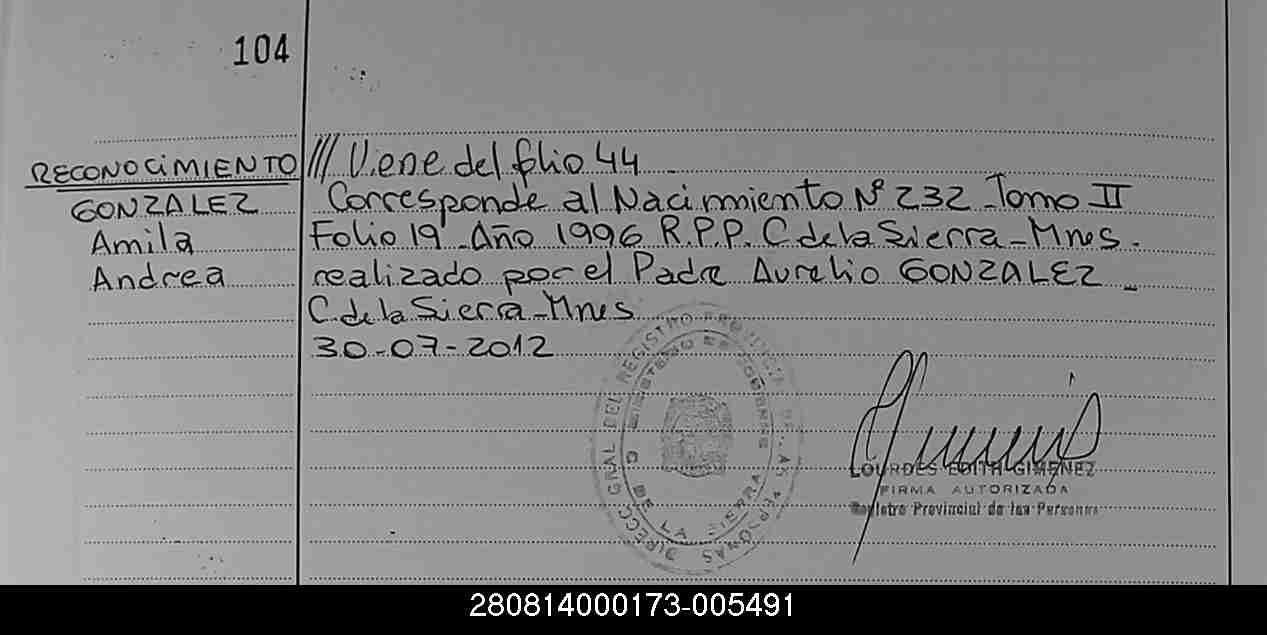 104
RECONOCIMIENTO
GONZALEZ
Amila
Andrea
/// Viene del folio 44
Corresponde al Nacimiento Nº 232 - Tomo II
Folio 19 - Año 1996 R.P.P. C de la Sierra - Mnes.
realizado por el Padre Aurelio GONZALEZ -
C. de la Sierra - Mnes
30-07-2012
DIRECC. GRAL DEL REGISTRO PROVINCIAL DE LAS PERSONAS
C. DE LA SIERRA
LOURDES EDITH GIMENEZ
FIRMA AUTORIZADA
Registro Provincial de las Personas
280814000173-005491